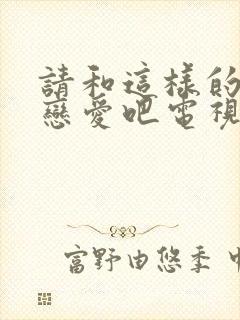 請和這樣的
戀愛吧電視
富野由悠季